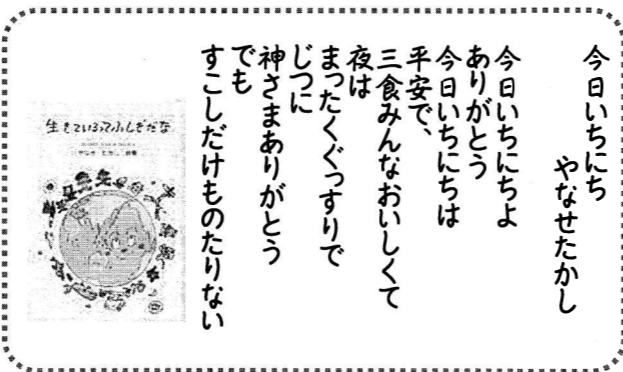 今日いちにち
やなせたかし
今日いちにちよ
ありがとう
今日いちにちは
平安で、
三食みんなおいしくて
夜は
まったくぐっすりで
じつに
神さまありがとう
でも
すこしだけものたりない
生きているってふしぎだな